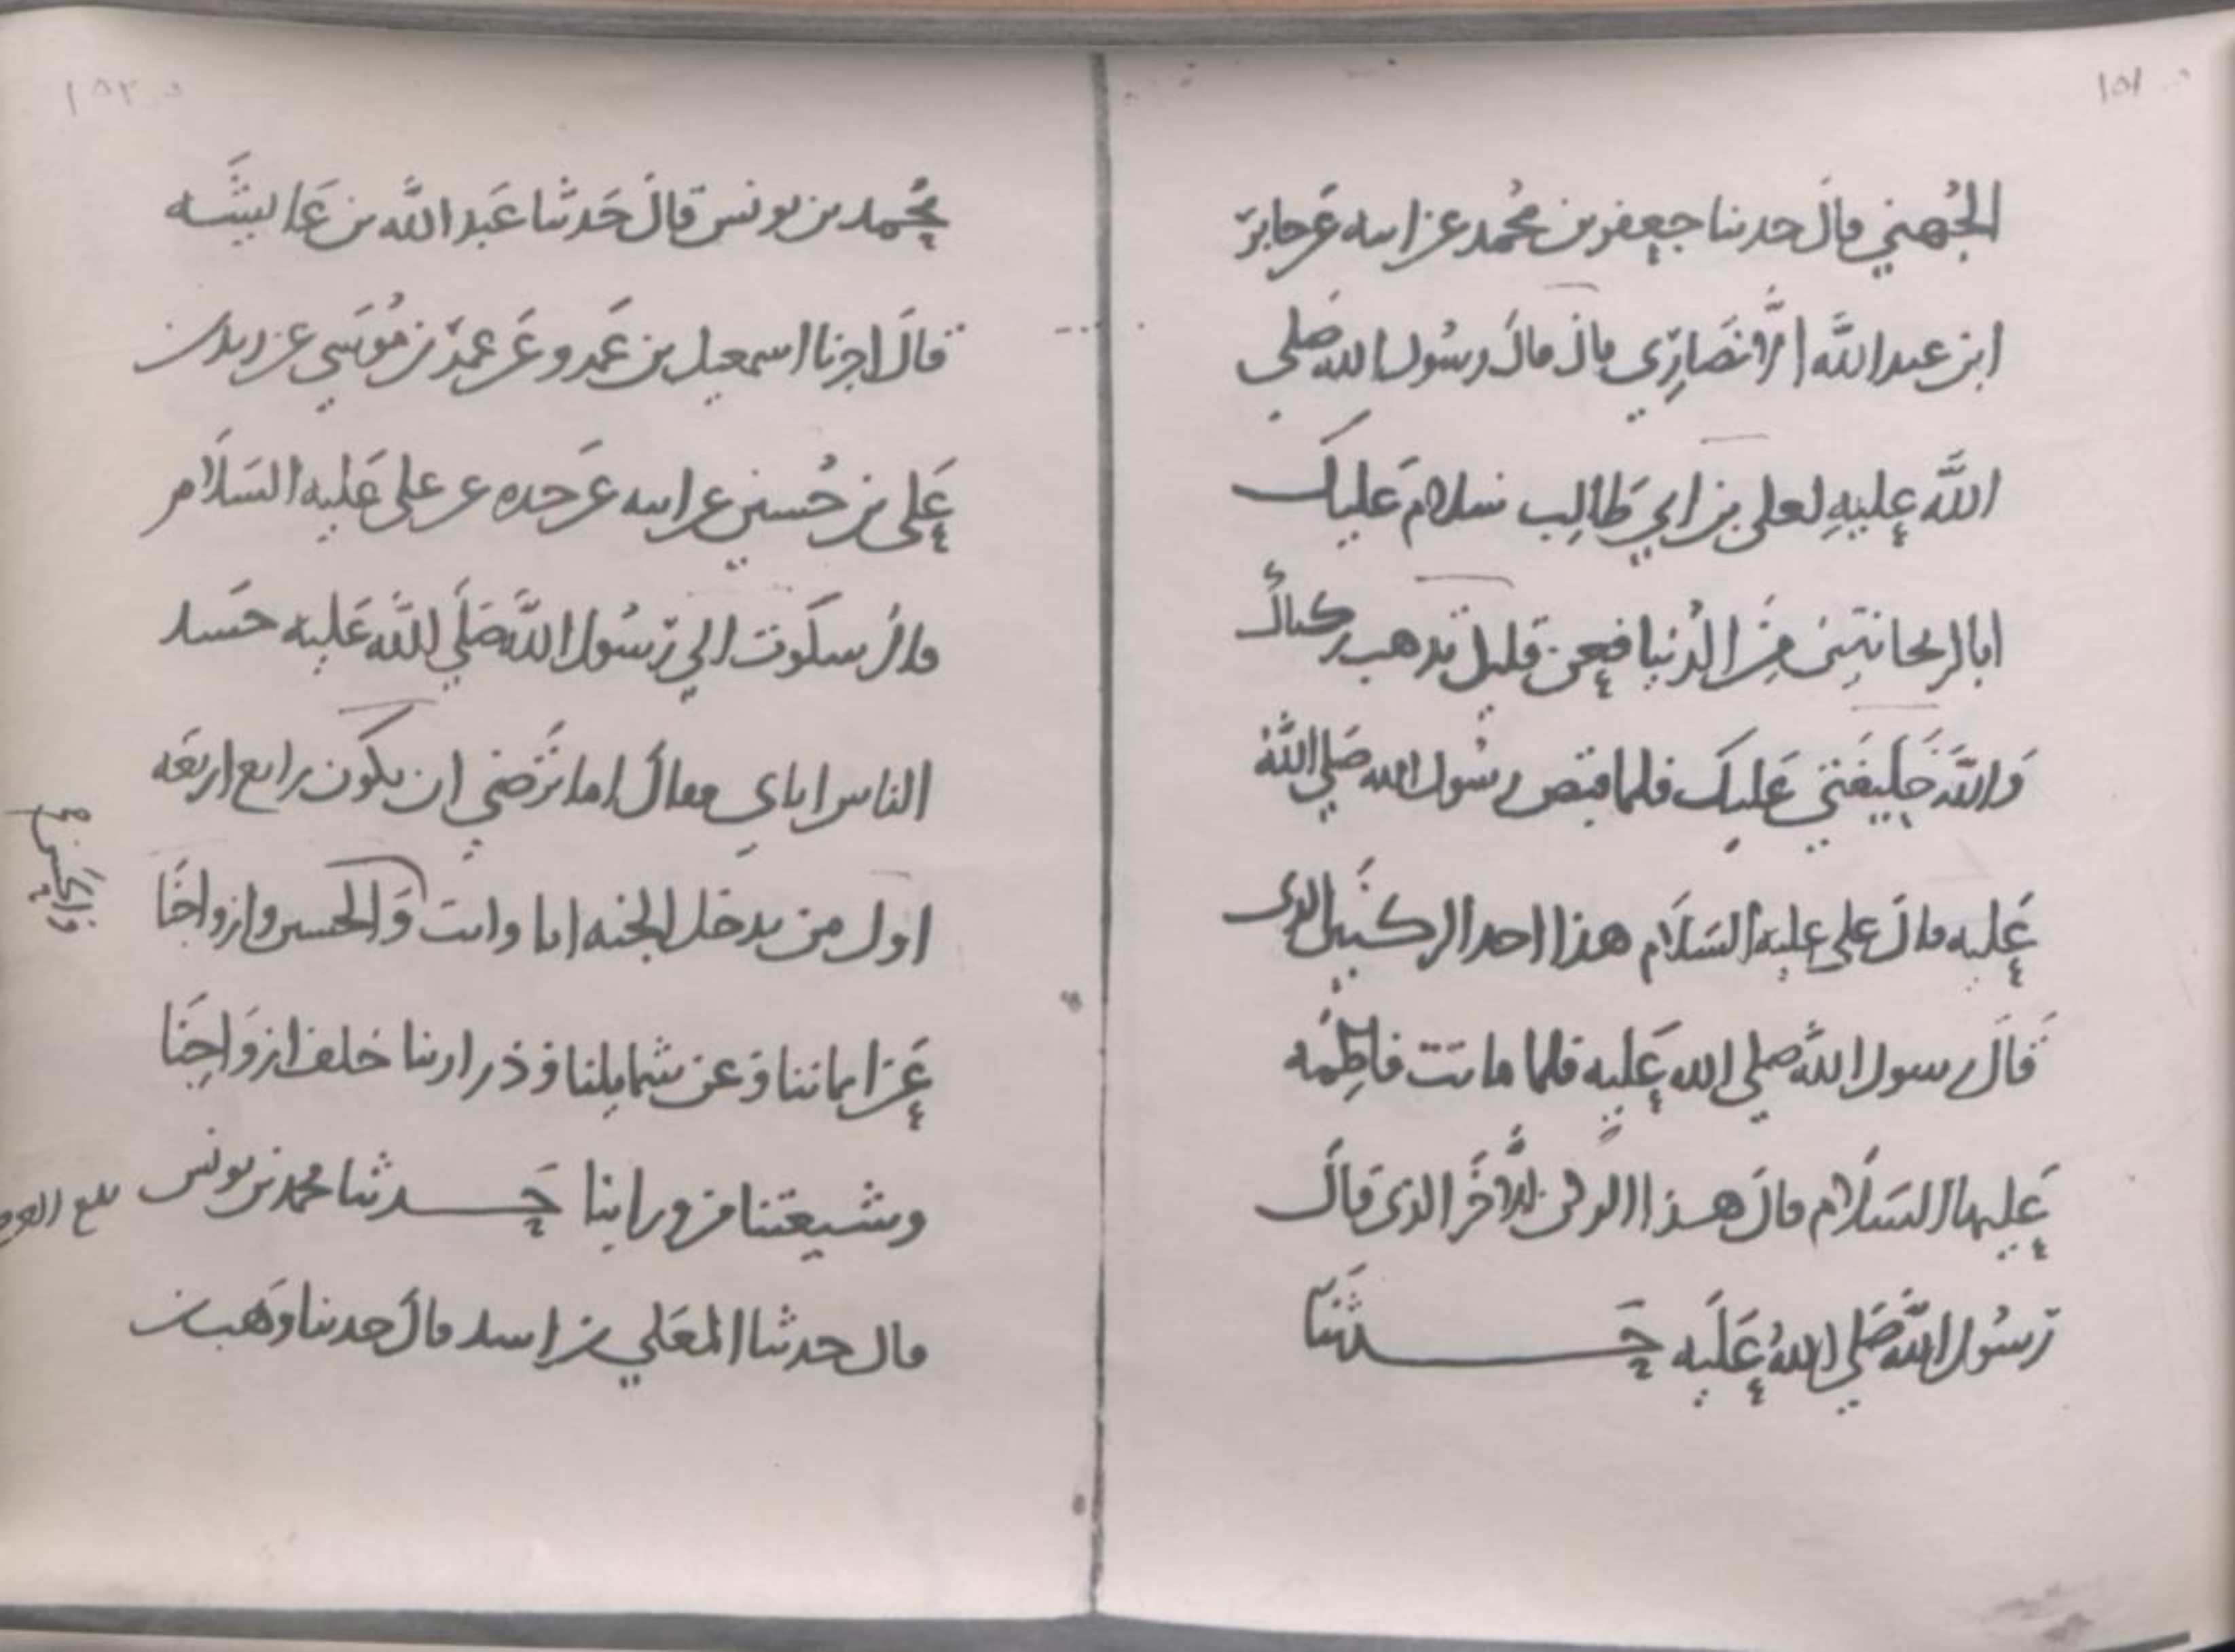 ١٥١
الجُهني قالَ حدثنا جعفر بن محُمد عن ابيه عَن جابر
ابن عبد اللَّه الأَنصَاري قالَ قالَ رسُول الله صَلى
اللَّه عليهِ لعلى بن ابي طَالِب سلام عَليك
ابا الريحانتين مِنَ الدُنيا فعن قليل يذهب ركناكَ
وَاللَّه خَليفَتي عَليك فلما قبض رسُول الله صَلي اللَّهُ
عَليه قالَ علي عليه السَلَام هذا احد الركنين الذى
قالَ رسول اللَّه صلي الله عَليه فلما ماتت فاطِمَه
عَليها السَلَام قالَ هذا الركن الأَخَر الذى قالَ
رَسُول اللَّه صَلي اللهُ عَلَيه حَدثنَا
١٥٢
محُمد بن يونس قالَ حَدثنا عَبد اللَّه بن عَائشَه
قالَ اخبرنا اسمعيل بن عَمرو عَن عمَر بن مُوسَي عن زيد بن
عَلى بن حُسين عن ابيه عَن جَده عن على عَليه السَلَام
قالَ شكوت الي رَسُول اللَّه صَلَي اللَّه عَليه حسَد
الناس اياي فقالَ اما ترَضي ان تكَون رابع اربعَه
اول من يدخل الجنه انا وانت وَالحسن وازواجنَا
والحُسَين
عَن ايماننا وَعن شمايلنا وَذرارينا خلف ازوَاجِنَا
وشيعتنا من ورائنا حَدثنا محمد بن يونس
قال حدثنا المعَلي بن اسد قالَ حدثنا وَهب بن